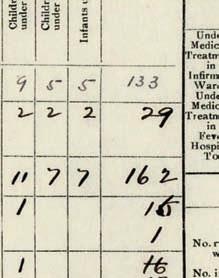 Childr
under
Childr
under
Infants u
9 5 5 133
2 2 2 29
11 7 7 162
1
1
1 16
Unde
Medic
Treatm
in
Infirm
Ward
Unde
Medic
Treatm
in
Feve
Hospi
To
No. r
w
No. i